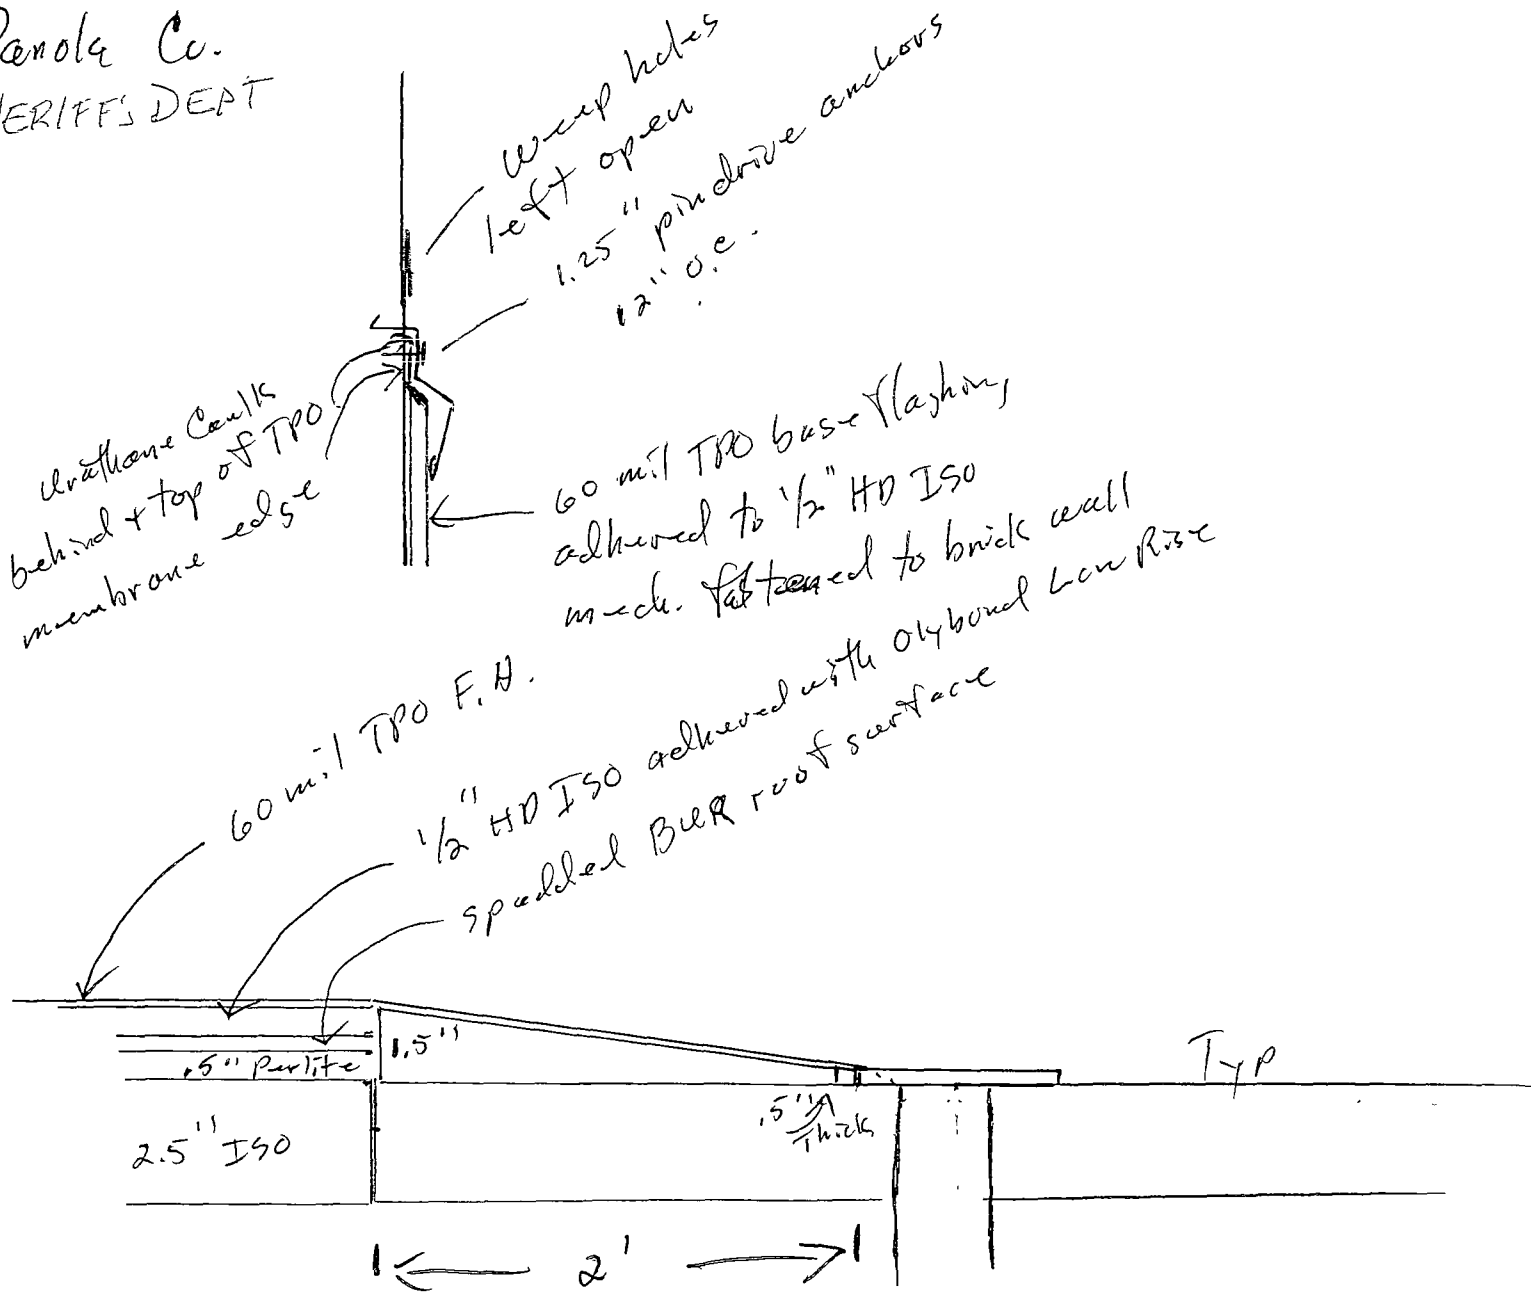 Panola Co.
SHERIFF'S DEPT
weep holes
left open
1.25" pin drive anchors
12" o.c.
Urathane Caulk
behind + top of TPO
membrane edge
60 mil TPO base flashing
adhered to 1/2" HD ISO
mech. fastened to brick wall
60 mil TPO F.A.
1/2" HD ISO adhered with Olybond Low Rise
spudded BUR roof surface
1.5"
.5" Perlite
2.5" ISO
.5"
Thick
Typ
2'